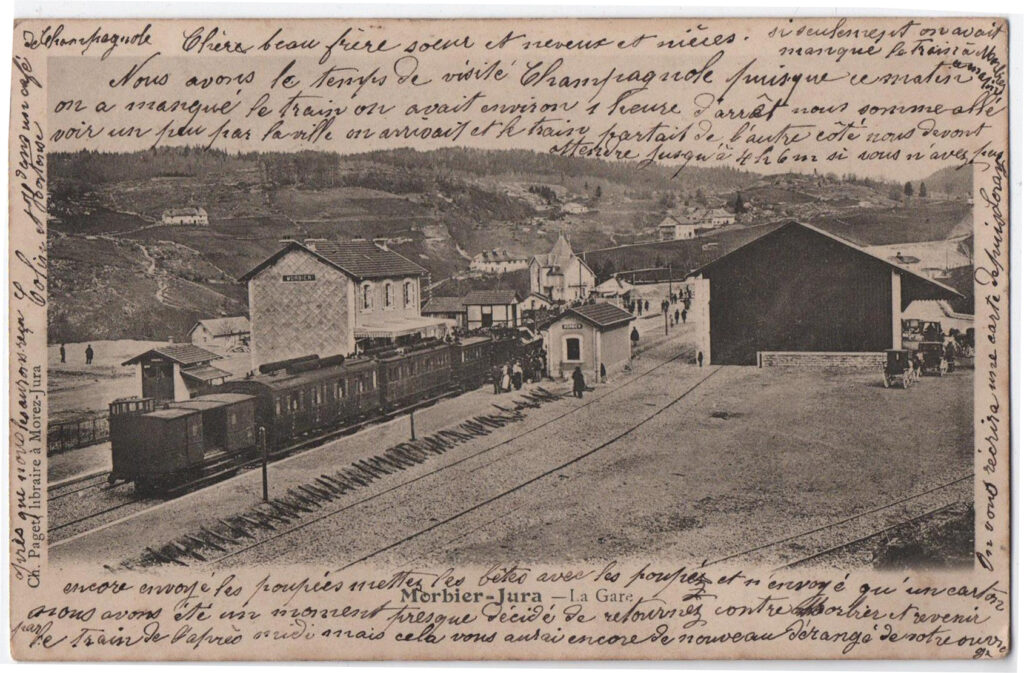 Chère beau frère soeur et neveux et nièces.
Nous avons le temps de visité Champagnole puisque ce matin
on a manqué le train on avait environ 1 heure d'arrêt nous somme allé
voir un peu par la ville on arrivait et le train partait de l'autre côté nous devont
attendre jusqu'à 4h6m si vous n'avez pas
encore envoyé les poupées mettez les bêtes avec les poupéz et n'envoyé qu'un carton
nous avons été un moment presque décidé de retournez contre Morbier et revenir
par le train de l'après midi mais cela vous aurai encore de nouveau dérangé de votre ouvrage
si seulement on avait
manque le train à Morbier
On vous récrira une carte depuis
Après que nous les aurons reçu
de Champagnole
MORBIER
MORBIER
Morbier-Jura — La Gare
Ch. Paget, libraire à Morez-Jura